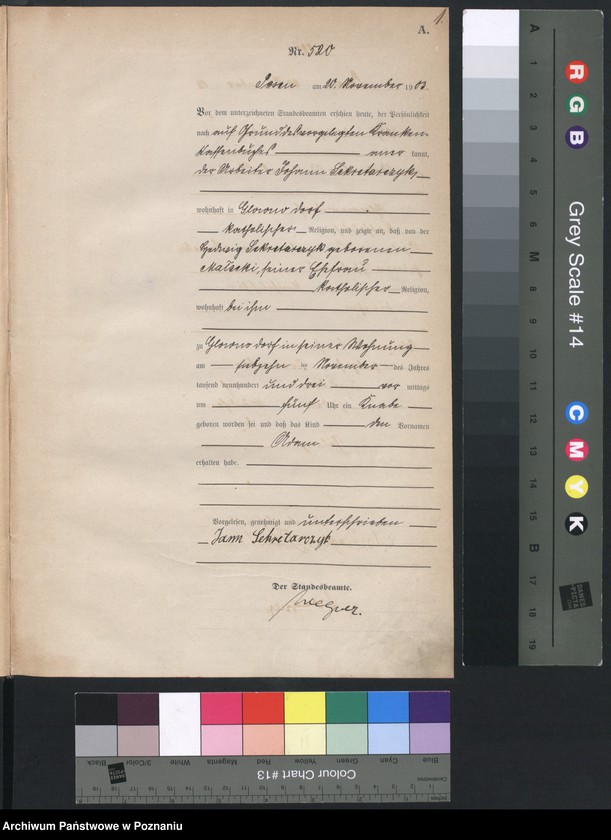 1.
A.
Nr. 520
am 20. November 1903.
Vor dem unterzeichneten Standesbeamten erschien heute, der Persönlichkeit
nach auf Grund des vorgelegten Kranken-
kassenbuches aner kannt,
der Arbeiter Johann Sekretarczyk,
wohnhaft in Glowno dorf
katholischer Religion, und zeigte an, daß von der
Hedwig Sekretarczyk geborenen
Malecki, seiner Ehefrau
katholischer Religion,
wohnhaft bei ihm
zu Glowno dorf in seiner Wohnung
am siebzehn ten November des Jahres
tausend neunhundert und drei vor mittags
um fünf Uhr ein Knabe
geboren worden sei und daß das Kind den Vornamen
Adam
erhalten habe.
Vorgelesen, genehmigt und unterschrieben
Jann Sekretarczyk
Der Standesbeamte.
A 1 2 3 4 5 6 M 8 9 10 11 12 13 14 15 B 17 18 19
R G B
Grey Scale #14
C M Y K
DANES PICTA
Blue Cyan Green Yellow Red Magenta White 3/Color Black
Colour Chart #13
DANES PICTA
Centimetres
Inches
Archiwum Państwowe w Poznaniu